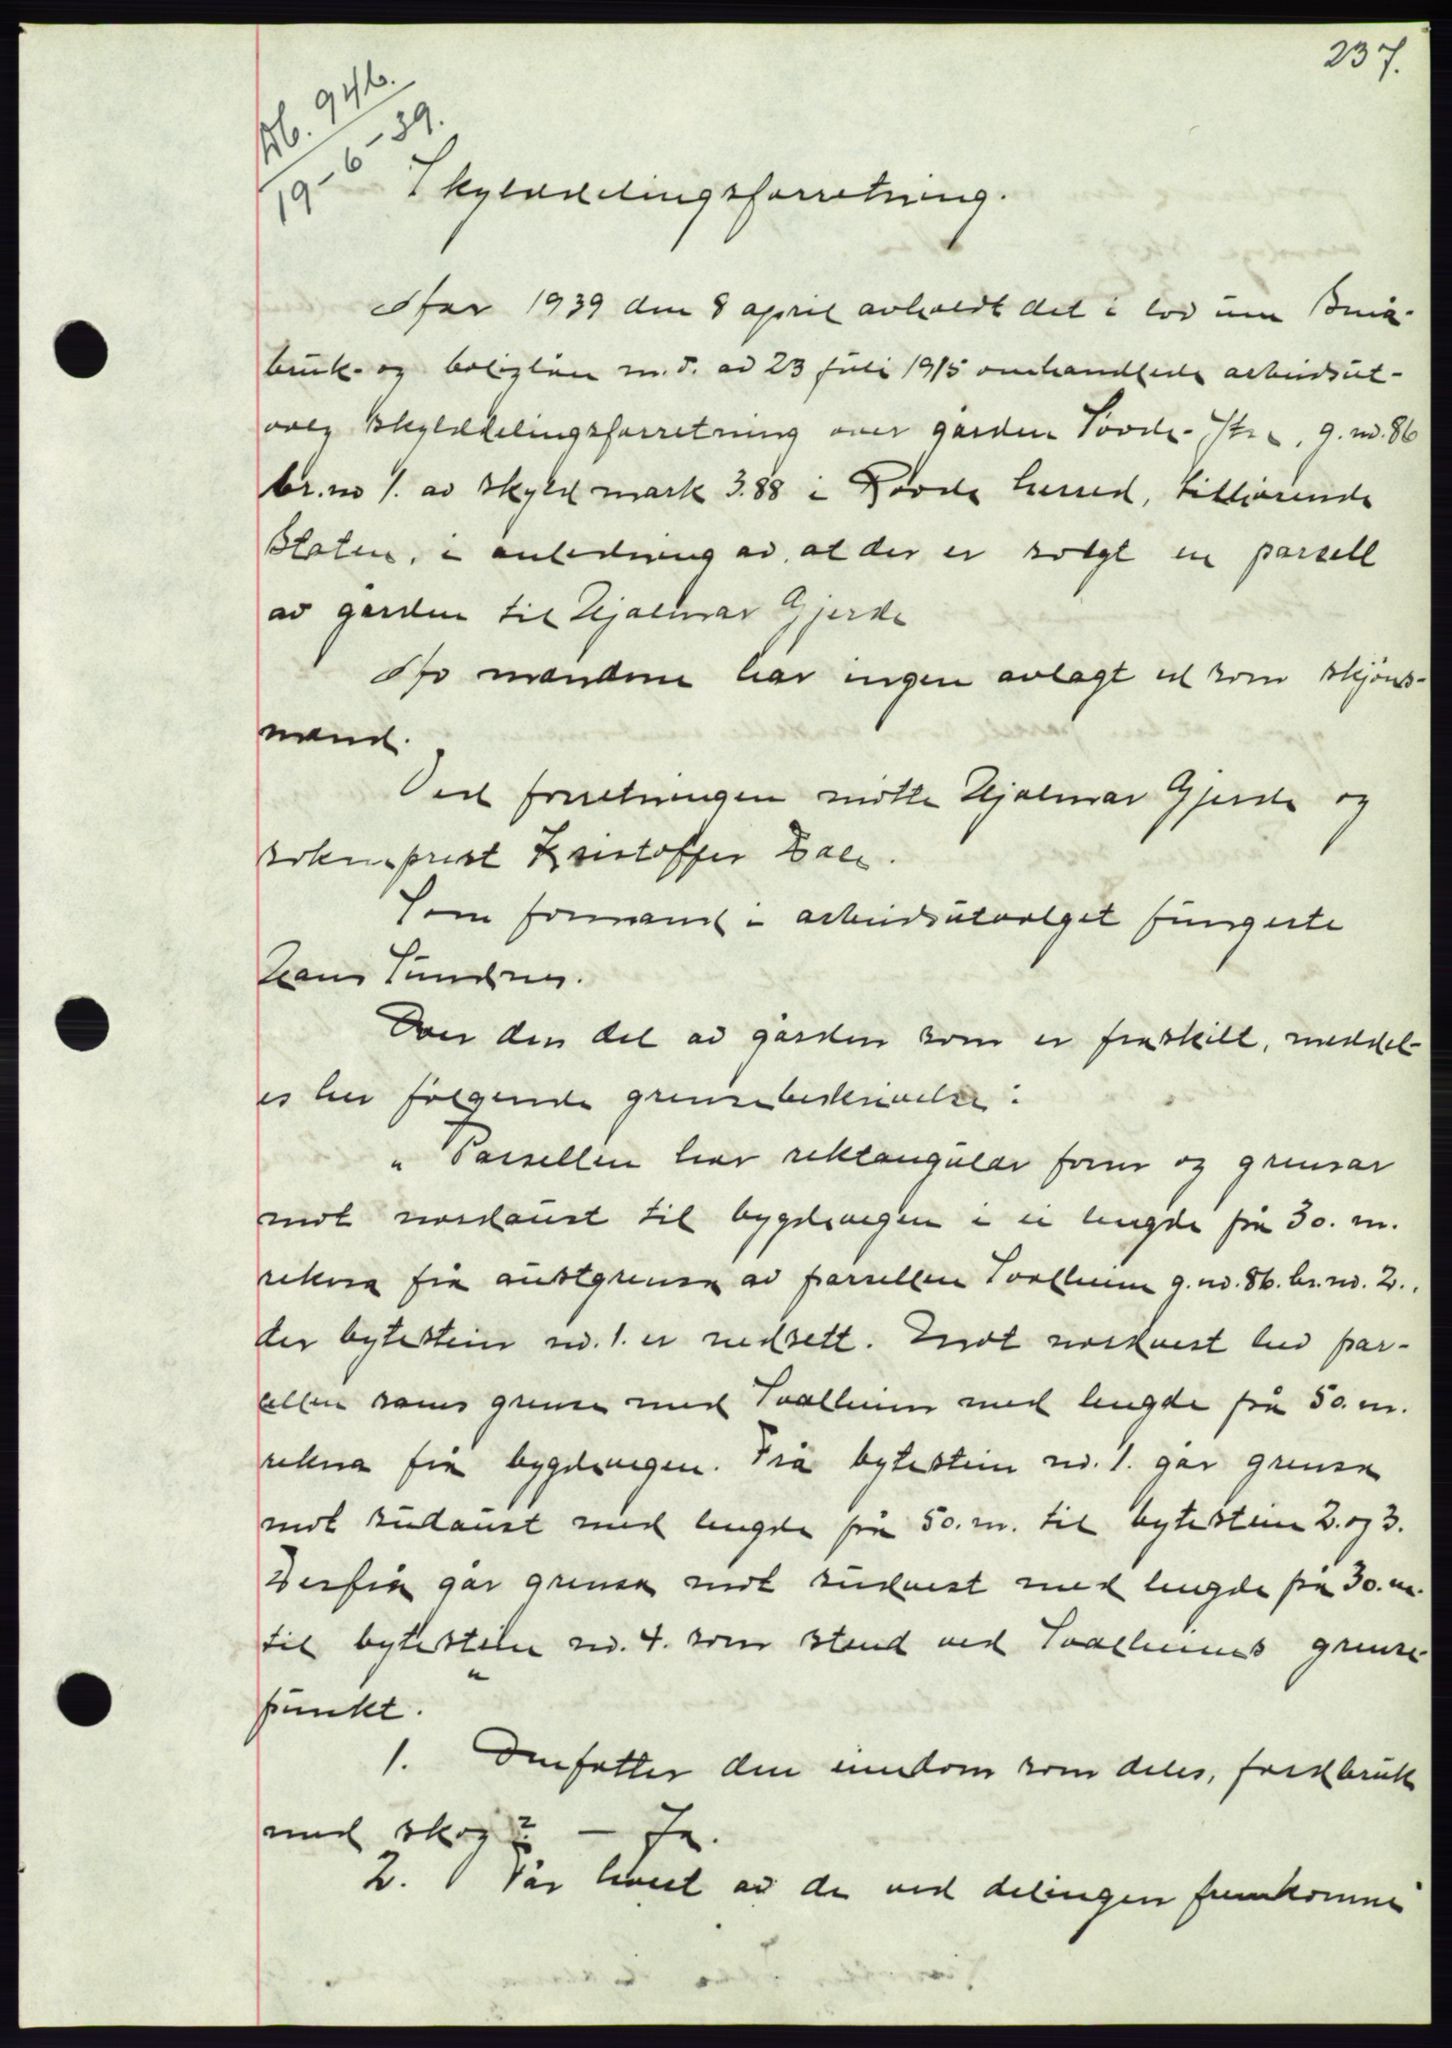 237.
Db. 946.
19-6-39.
Skylddelingsforretning.
År 1939 den 8 april avholdt det i lov um Små-
bruk- og boliglån m.v. av 23 juli 1915 omhandlede arbeidsut-
valg skylddelingsforretning over gården Søvde-Ytre, g.nr. 86
br.nr 1. av skyld mark 3.88 i Rovde herred, tilhørende
Staten, i anledning av, at der er solgt en parsell
av gården til Hjalmar Gjerde
Av mændene har ingen avlagt ed som skjøns-
mænd.
Ved forretningen møtte Hjalmar Gjerde og
sokneprest Kristoffer Dale.
Som formand i arbeidsutvalget fungerte
Hans Sundnes.
Over den del av gården som er fraskilt, meddel-
es her følgende grensebeskrivelse:
" Parsellen har rektangulær form og grensar
mot nordaust til bygdevegen i ei lengde på 30. m.
rekna frå austgrensa av parsellen Solheim g.nr. 86. br.nr. 2.,
der bytestein nr. 1. er nedsett. Imot nordvest hev par-
sellen sams grense med Solheim med lengde på 50. m.
rekna frå bygdevegen. Frå bytestein nr. 1. går grensa
mot sudaust med lengde på 50. m. til bytestein 2. og 3.
Derfrå går grensa mot sudvest med lengde på 30. m.
til bytestein nr. 4. som stend ved Solheims grense-
punkt. "
1. Omfatter den eiendom som deles, jordbruk
med skog? — Ja.
2. Får hvert av de ved delingen fremkomne